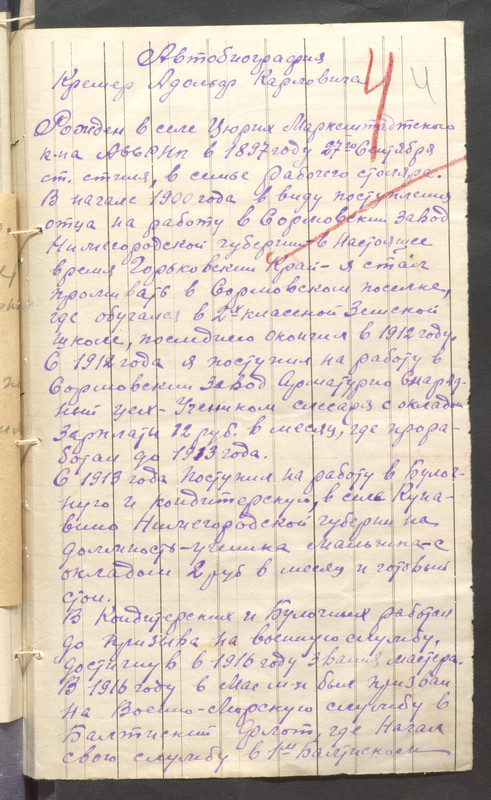 Автобиография
Кремер Адольф Карловича
4
4
Рожден в селе Цюрих Марксштадтского
к-на АССРНП в 1897 году 27го Сентября
ст. стиля, в семье рабочего столяра.
В начале 1900 года в виду поступления
отца на работу в Сормовский завод
Нижегородской губернии в настоящее
время Горьковский край – я стал
проживать в Сормовском поселке,
где обучался в 2х классной Земской
школе, последнего окончил в 1912 году.
С 1912 года я поступил на работу в
Сормовский завод Арматурно Снаряд-
ный цех – Учеником слесаря с окладом
зарплаты 12 руб. в месяц, где прора-
ботал до 1913 года.
С 1913 года поступил на работу в Булоч-
ную и кондитерскую, в селе Куна-
вино Нижегородской губернии на
должность – ученика мальчика – с
окладом 2 руб в месяц и готовый
стол.
В Кондитерских и Булочных работал
до призыва на военную службу,
достигнув в 1916 году звания мастера.
В 1916 году в Мае м-це был призван
на Военно-Морскую службу в
Балтийский Флот, где Начал
свою службу в 1ом Балтиском